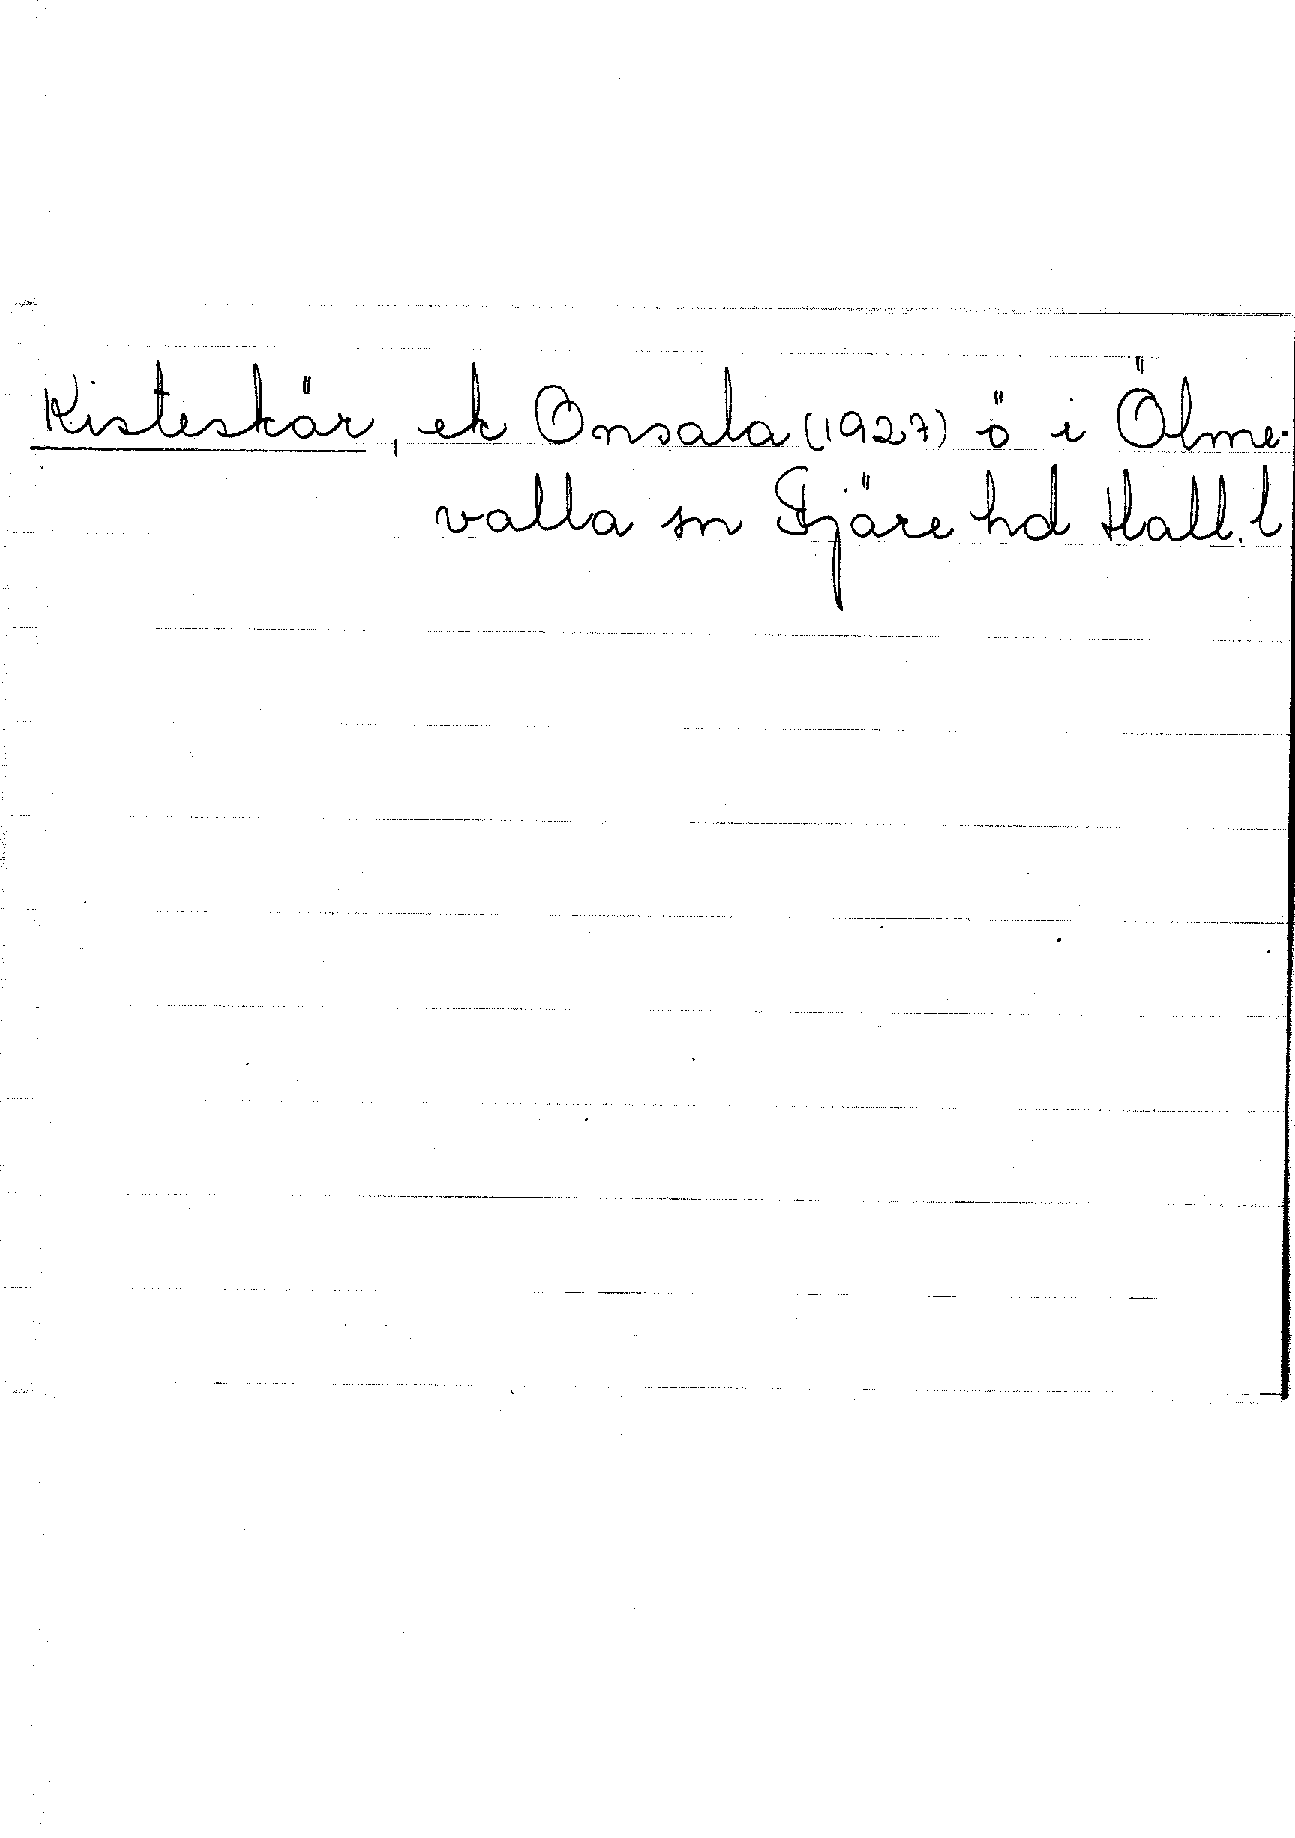 Kisteskär, ek Onsala (1927) ö i Ölme-
valla sn Fjäre hd Hall. l